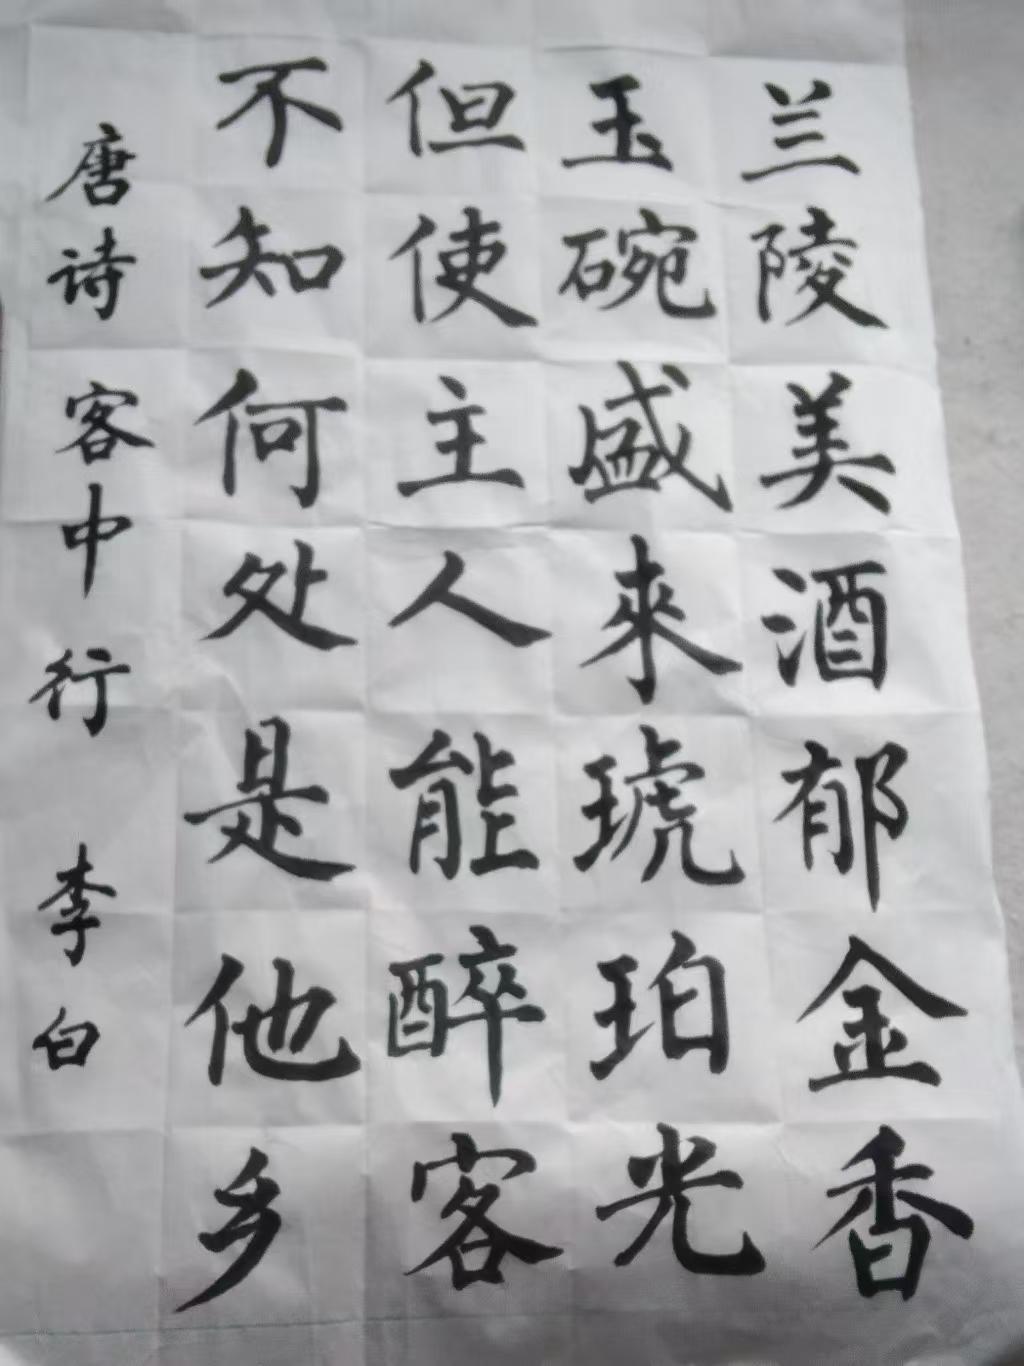 兰陵美酒郁金香
玉碗盛來琥珀光
但使主人能醉客
不知何处是他乡
唐诗 客中行 李白